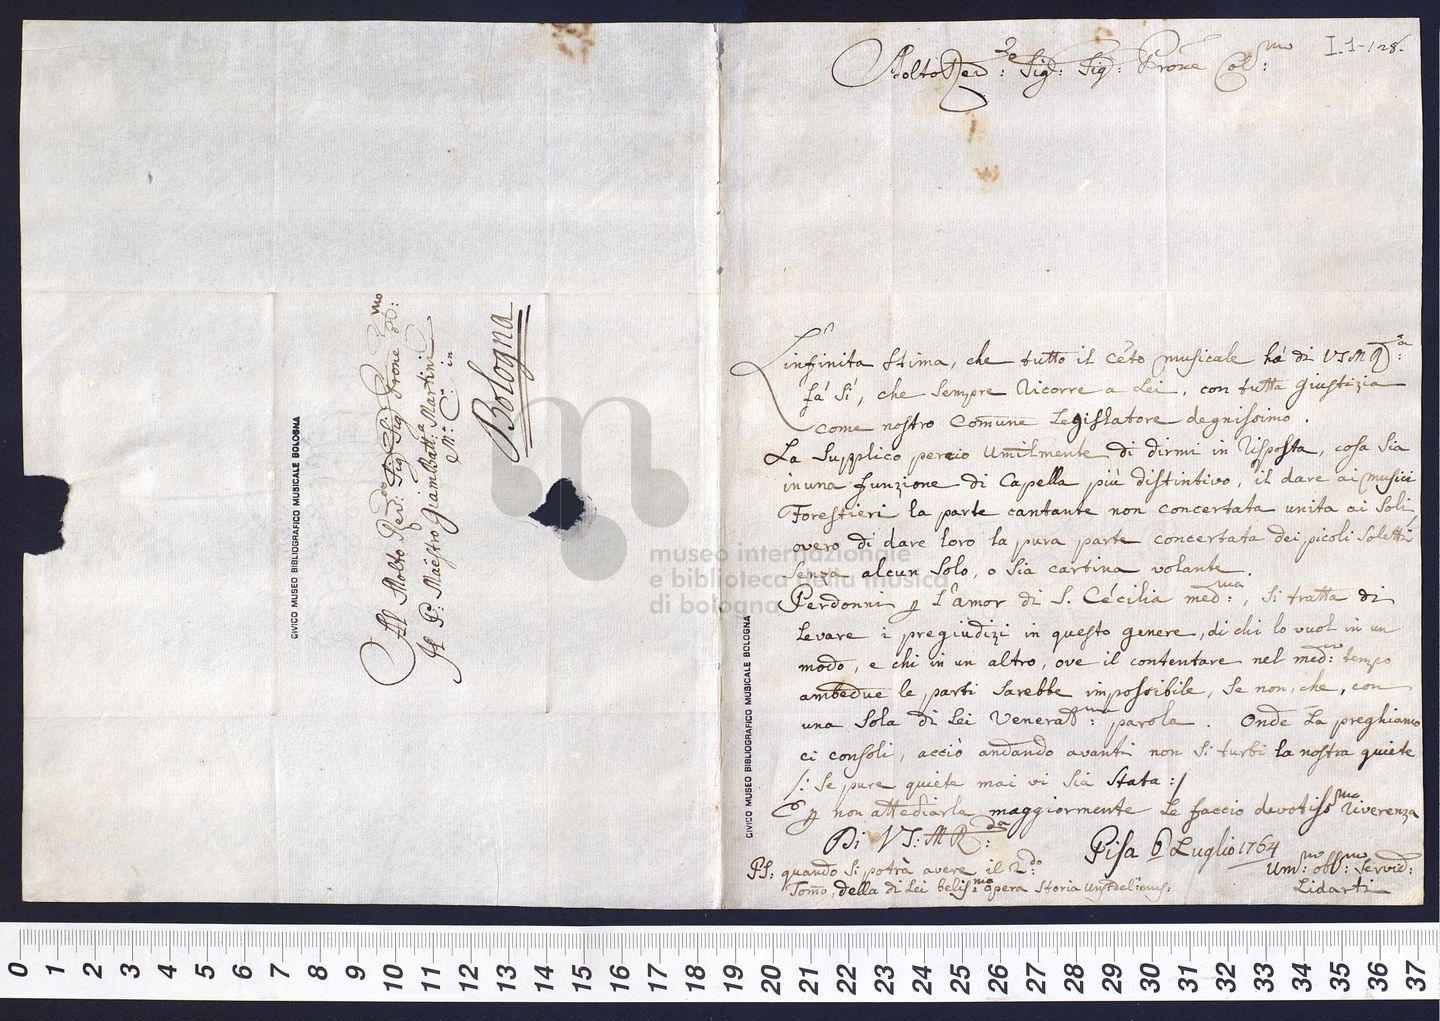 I.1-128.
Molto Rev:de Sig: Sig: Prone Col:mo
L'infinita stima, che tutto il céto musicale há di VSMR:a
fá sì, che sempre ricorre a Lei, con tutta giustizia
come nostro Comune Legislatore degnissimo.
La Supplico percio Umilmente di dirmi in risposta, cosa sia
in una funzione di Capella più distintivo, il dare ai musici
Forestieri la parte cantante non concertata unita ai Soli,
overo di dare loro la pura parte concertata dei picoli Soletti
senza alcun Solo, o sia cartina volante.
Perdonni p l'amor di S. Cécilia med:ma, si tratta di
Levare i pregiudizi in questo genere, di chi lo vuol in un
modo, e chi in un altro, ove il contentare nel med:mo tempo
ambedue le parti sarebbe impossibile, se non, che, con
una sola di Lei Venerat:ma parola. Onde La preghiamo
ci consoli, acciò andando avanti non si turbi la nostra quiete
/: se pure quiete mai vi sia stata :/
E p non attediarla maggiormente Le faccio devotiss:ma riverenza
Di VS: MR:da
Pisa 6 Luglio 1764
Um:mo obb:mo Servid:
Lidarti
PS: quando si potrà avere il 2:do
Tomo, della di Lei belis:ma opera Storia del: mus:
Al Molto Rev:do Sig: Sig: Prone
Il P: Maéstro Giam Batt:a Martini
M: C: in
Bologna
CIVICO MUSEO BIBLIOGRAFICO MUSICALE BOLOGNA
CIVICO MUSEO BIBLIOGRAFICO MUSICALE BOLOGNA
museo internazionale
e biblioteca della musica
di bologna
0 1 2 3 4 5 6 7 8 9 10 11 12 13 14 15 16 17 18 19 20 21 22 23 24 25 26 27 28 29 30 31 32 33 34 35 36 37